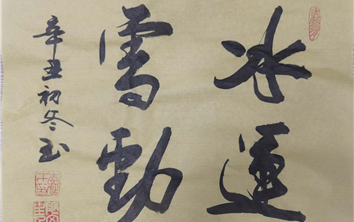 冰運
雪動
辛丑初冬玉